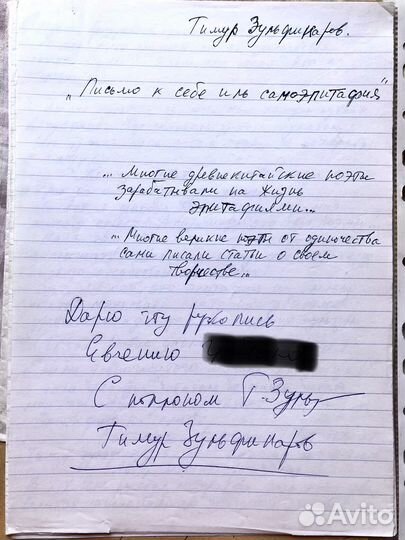 Тимур Зульфикаров.
„Письмо к себе иль самоэпитафия"
... Многие древнекитайские поэты
зарабатывали на жизнь
эпитафиями...
... Многие великие поэты от одиночества
сами писали статьи о своем
творчестве...
Дарю эту рукопись
Евгению
С поклоном Т. Зуль
Тимур Зульфикаров
Avito